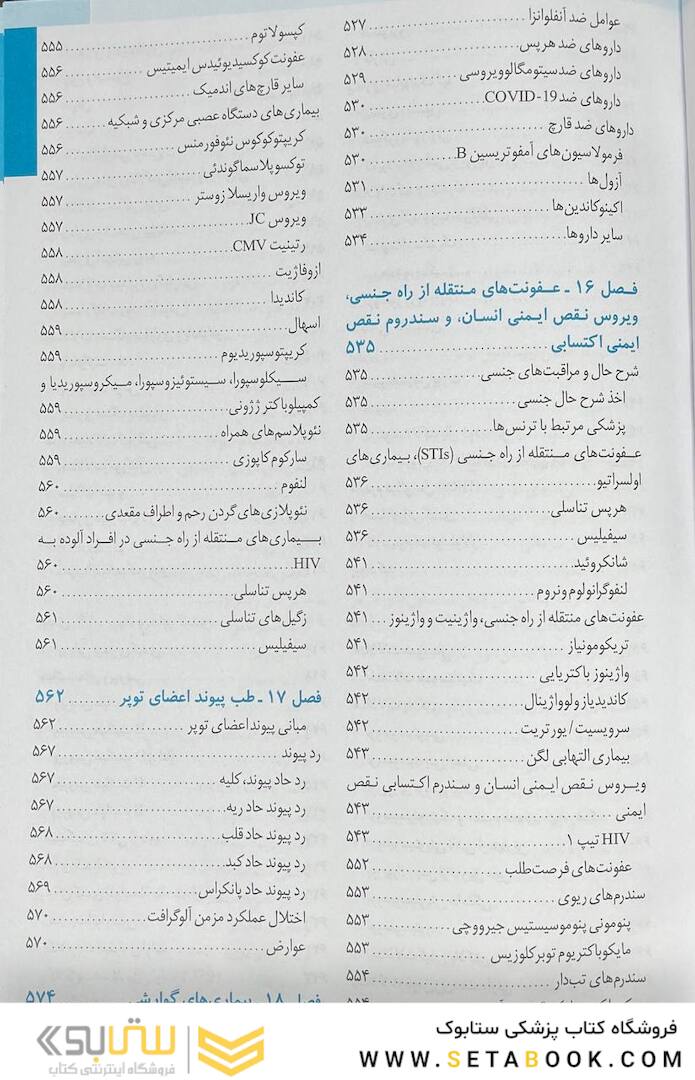 عوامل ضد آنفلوانزا ۵۲۷
داروهای ضد هرپس ۵۲۸
داروهای ضد سیتومگالوویروسی ۵۲۹
داروهای ضد COVID-19 ۵۳۰
داروهای ضد قارچ ۵۳۰
فرمولاسیون‌های آمفوتریسین B ۵۳۰
آزول‌ها ۵۳۱
اکینوکاندین‌ها ۵۳۳
سایر داروها ۵۳۴
فصل ۱۶ ـ عفونت‌های منتقله از راه جنسی،
ویروس نقص ایمنی انسان، و سندروم نقص
ایمنی اکتسابی ۵۳۵
شرح حال و مراقبت‌های جنسی ۵۳۵
اخذ شرح حال جنسی ۵۳۵
پزشکی مرتبط با ترنس‌ها ۵۳۵
عفونت‌های منتقله از راه جنسی (STIs)، بیماری‌های
اولسراتیو ۵۳۶
هرپس تناسلی ۵۳۶
سیفیلیس ۵۳۶
شانکروئید ۵۴۱
لنفوگرانولوم ونروم ۵۴۱
عفونت‌های منتقله از راه جنسی، واژینیت و واژینوز ۵۴۱
تریکومونیاز ۵۴۱
واژینوز باکتریایی ۵۴۲
کاندیدیاز ولوواژینال ۵۴۲
سرویسیت/یورتریت ۵۴۲
بیماری التهابی لگن ۵۴۳
ویروس نقص ایمنی انسان و سندرم اکتسابی نقص
ایمنی ۵۴۳
HIV تیپ ۱ ۵۴۳
عفونت‌های فرصت‌طلب ۵۵۲
سندرم‌های ریوی ۵۵۳
پنومونی پنوموسیستیس جیرووچی ۵۵۳
مایکوباکتریوم توبرکلوزیس ۵۵۳
سندرم‌های تب‌دار ۵۵۴
کپسولاتوم ۵۵۵
عفونت کوکسیدیوئیدس ایمیتیس ۵۵۶
سایر قارچ‌های اندمیک ۵۵۶
بیماری‌های دستگاه عصبی مرکزی و شبکیه ۵۵۶
کریپتوکوکوس نئوفورمنس ۵۵۶
توکسوپلاسما گوندئی ۵۵۷
ویروس واریسلا زوستر ۵۵۷
ویروس JC ۵۵۷
رتینیت CMV ۵۵۸
ازوفاژیت ۵۵۸
کاندیدا ۵۵۸
اسهال ۵۵۹
کریپتوسپوریدیوم ۵۵۹
سیکلوسپورا، سیستوئیزوسپورا، میکروسپوریدیا و
کمپیلوباکتر ژژونی ۵۵۹
نئوپلاسم‌های همراه ۵۵۹
سارکوم کاپوزی ۵۵۹
لنفوم ۵۶۰
نئوپلازی‌های گردن رحم و اطراف مقعدی ۵۶۰
بیماری‌های منتقله از راه جنسی در افراد آلوده به
HIV ۵۶۰
هرپس تناسلی ۵۶۰
زگیل‌های تناسلی ۵۶۱
سیفیلیس ۵۶۱
فصل ۱۷ ـ طب پیوند اعضای توپر ۵۶۲
مبانی پیوند اعضای توپر ۵۶۲
رد پیوند ۵۶۷
رد حاد پیوند، کلیه ۵۶۷
رد پیوند حاد ریه ۵۶۷
رد پیوند حاد قلب ۵۶۸
رد پیوند حاد کبد ۵۶۸
رد پیوند حاد پانکراس ۵۶۹
اختلال عملکرد مزمن آلوگرافت ۵۷۰
عوارض ۵۷۰
فصل ۱۸ ـ بیماری‌های گوارشی ۵۷۴
ستابوک
فروشگاه اینترنتی کتاب
فروشگاه کتاب پزشکی ستابوک
WWW.SETABOOK.COM